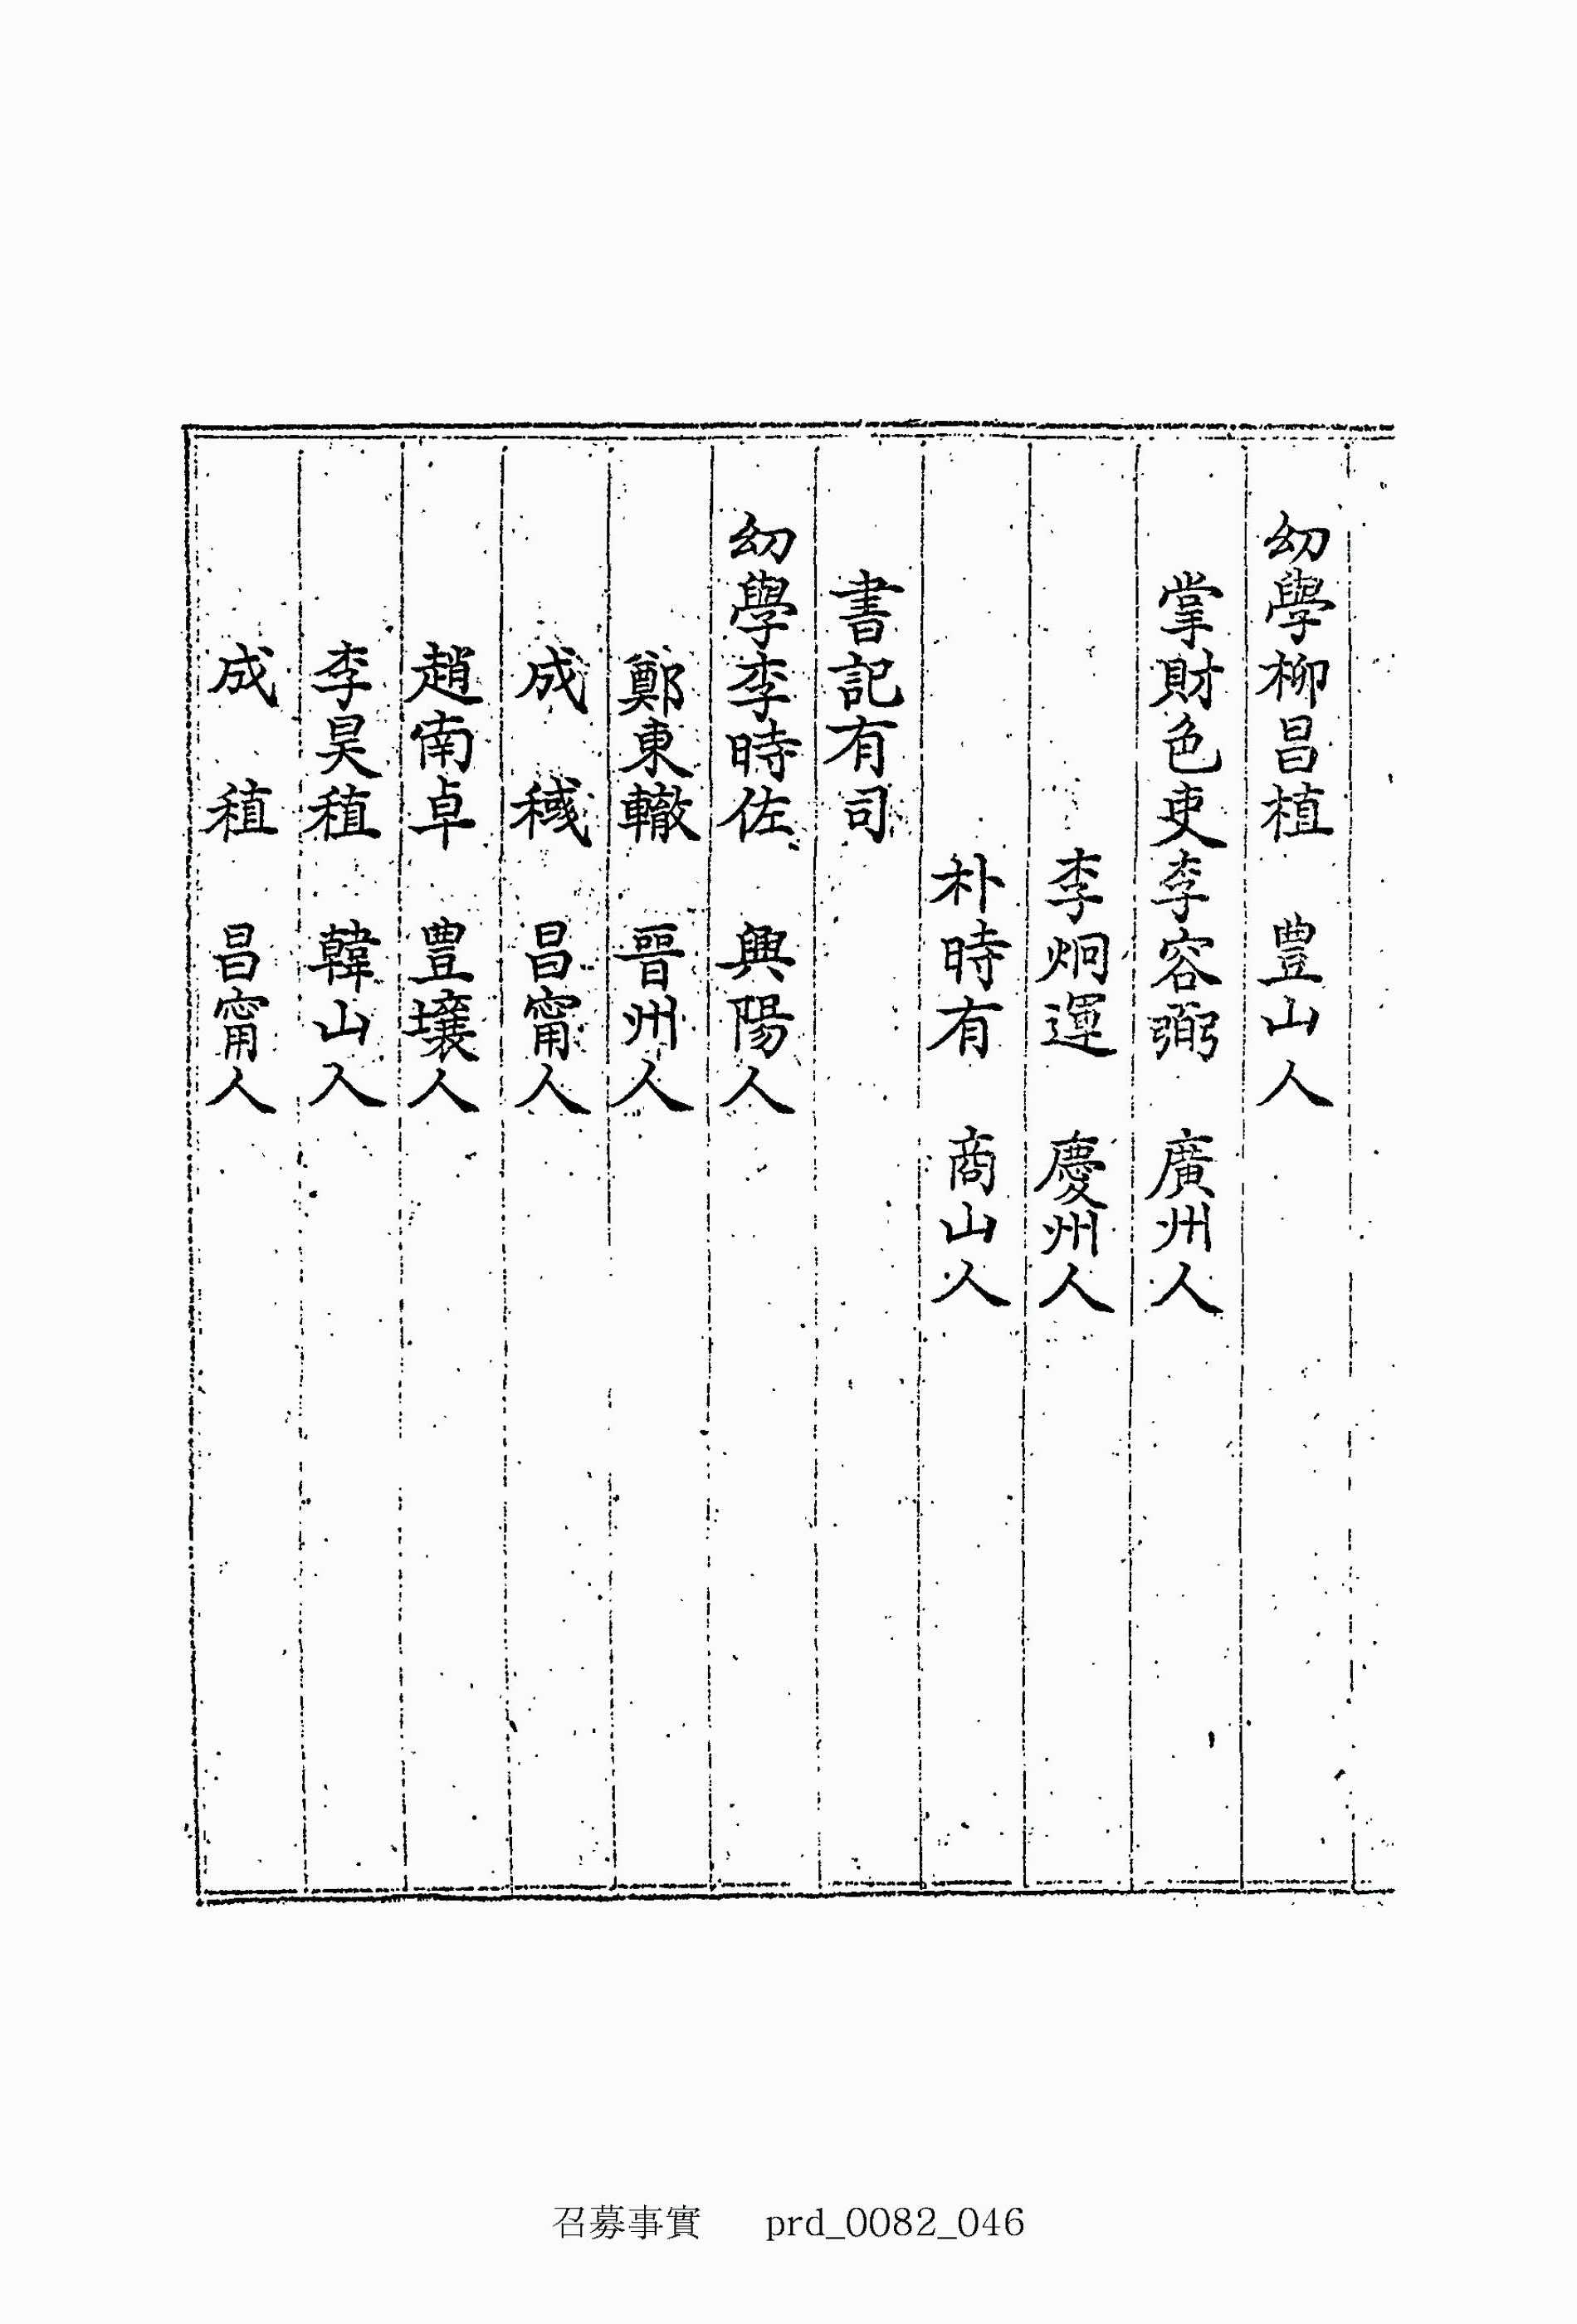 幼學柳昌植 豊山人
掌財色吏李容弼 廣州人
李炯運 慶州人
朴時有 商山人
書記有司
幼學李時佐 興陽人
鄭東轍 晉州人
成 稢 昌甯人
趙南卓 豊壤人
李昊稙 韓山人
成 稙 昌甯人
召募事實 prd_0082_046